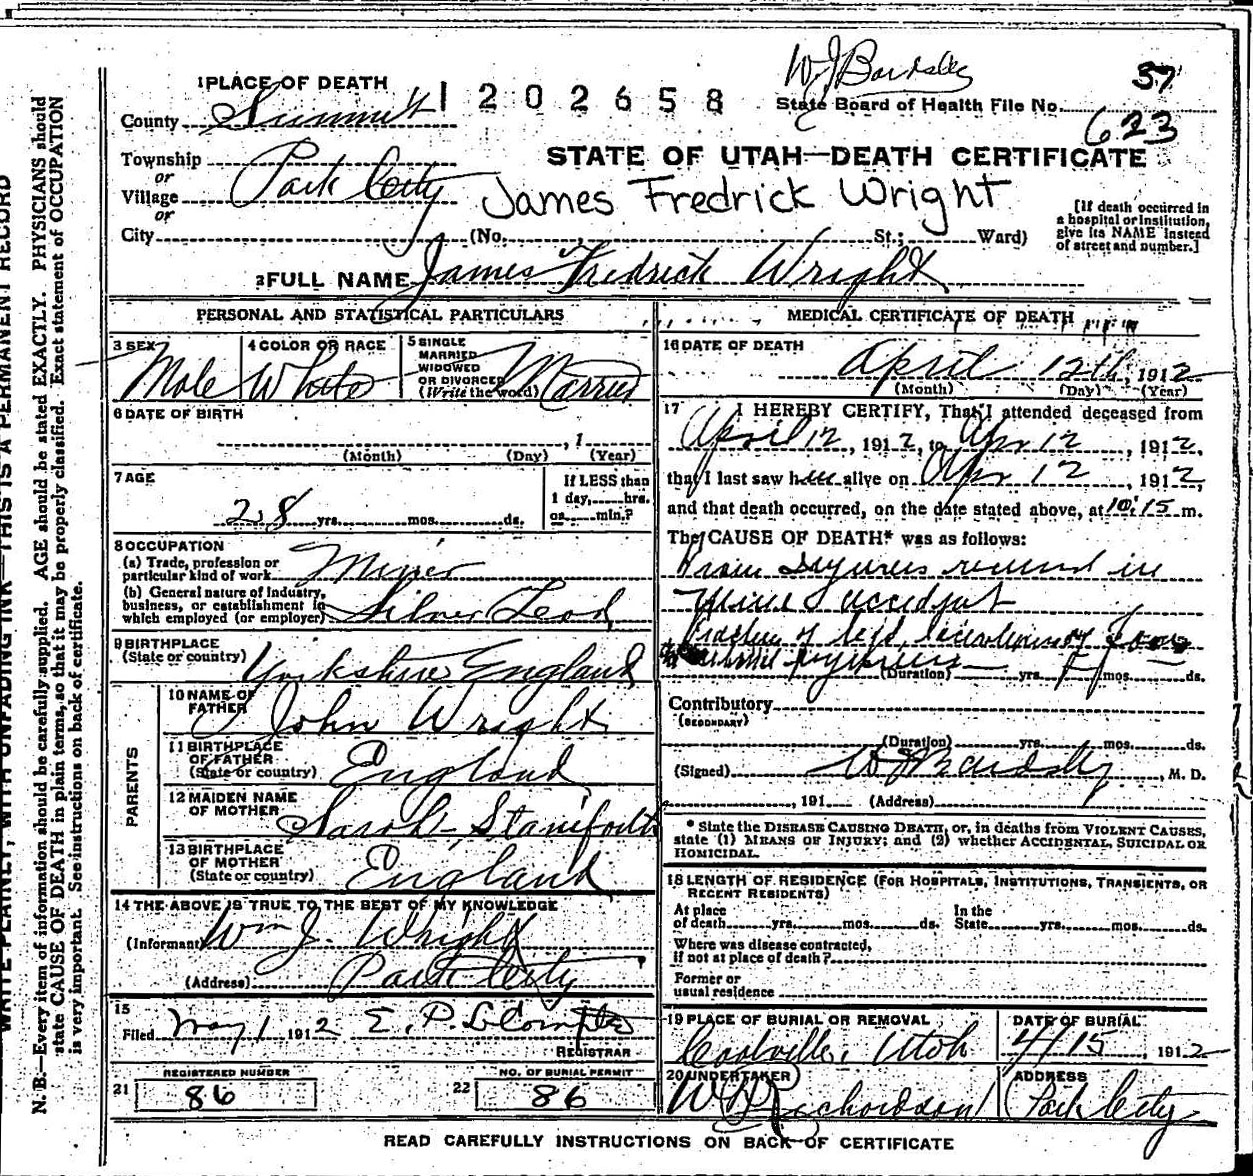 W J Bardsley
37
1 PLACE OF DEATH
1202658
State Board of Health File No.
623
County Summit
STATE OF UTAH—DEATH CERTIFICATE
Township
or
Village Park City
or
James Fredrick Wright
[If death occurred in
a hospital or institution,
give its NAME instead
of street and number.]
City (No. St.; Ward)
2 FULL NAME James Fredrick Wright
PERSONAL AND STATISTICAL PARTICULARS
3 SEX Male
4 COLOR OR RACE White
5 SINGLE
MARRIED
WIDOWED
OR DIVORCED
(Write the word) Married
6 DATE OF BIRTH
, 1
(Month) (Day) (Year)
7 AGE
28 yrs. mos. ds.
If LESS than
1 day, hrs.
or min.?
8 OCCUPATION
(a) Trade, profession or
particular kind of work Miner
(b) General nature of Industry,
business, or establishment in
which employed (or employer) Silver Lead
9 BIRTHPLACE
(State or country) Yorkshire England
PARENTS
10 NAME OF
FATHER John Wright
11 BIRTHPLACE
OF FATHER
(State or country) England
12 MAIDEN NAME
OF MOTHER Sarah Staniforth
13 BIRTHPLACE
OF MOTHER
(State or country) England
14 THE ABOVE IS TRUE TO THE BEST OF MY KNOWLEDGE
(Informant) Wm J. Wright
(Address) Park City
15
Filed May 1 1912 E. P. LeCompte
REGISTRAR
REGISTERED NUMBER
21 86
NO. OF BURIAL PERMIT
22 86
MEDICAL CERTIFICATE OF DEATH
16 DATE OF DEATH
April 12th, 1912
(Month) (Day) (Year)
17 I HEREBY CERTIFY, That I attended deceased from
April 12, 1912, to Apr 12, 1912,
that I last saw him alive on Apr 12, 1912,
and that death occurred, on the date stated above, at 10:15 m.
The CAUSE OF DEATH* was as follows:
From Injuries received in
Mine Accident
Fracture of left
(Duration) yrs. mos. ds.
Contributory
(SECONDARY)
(Duration) yrs. mos. ds.
(Signed) W J Bardsley, M. D.
, 191 (Address)
* State the DISEASE CAUSING DEATH, or, in deaths from VIOLENT CAUSES,
state (1) MEANS OF INJURY; and (2) whether ACCIDENTAL, SUICIDAL OR
HOMICIDAL.
18 LENGTH OF RESIDENCE (FOR HOSPITALS, INSTITUTIONS, TRANSIENTS, OR
RECENT RESIDENTS)
At place
of death yrs. mos. ds.
In the
State yrs. mos. ds.
Where was disease contracted,
if not at place of death?
Former or
usual residence
19 PLACE OF BURIAL OR REMOVAL
Coalville, Utah
DATE OF BURIAL
4/15, 1912
20 UNDERTAKER
W Richardson
ADDRESS
Park City
READ CAREFULLY INSTRUCTIONS ON BACK OF CERTIFICATE
WRITE PLAINLY, WITH UNFADING INK—THIS IS A PERMANENT RECORD
N. B.—Every item of information should be carefully supplied. AGE should be stated EXACTLY. PHYSICIANS should
state CAUSE OF DEATH in plain terms, so that it may be properly classified. Exact statement of OCCUPATION
is very important. See instructions on back of certificate.